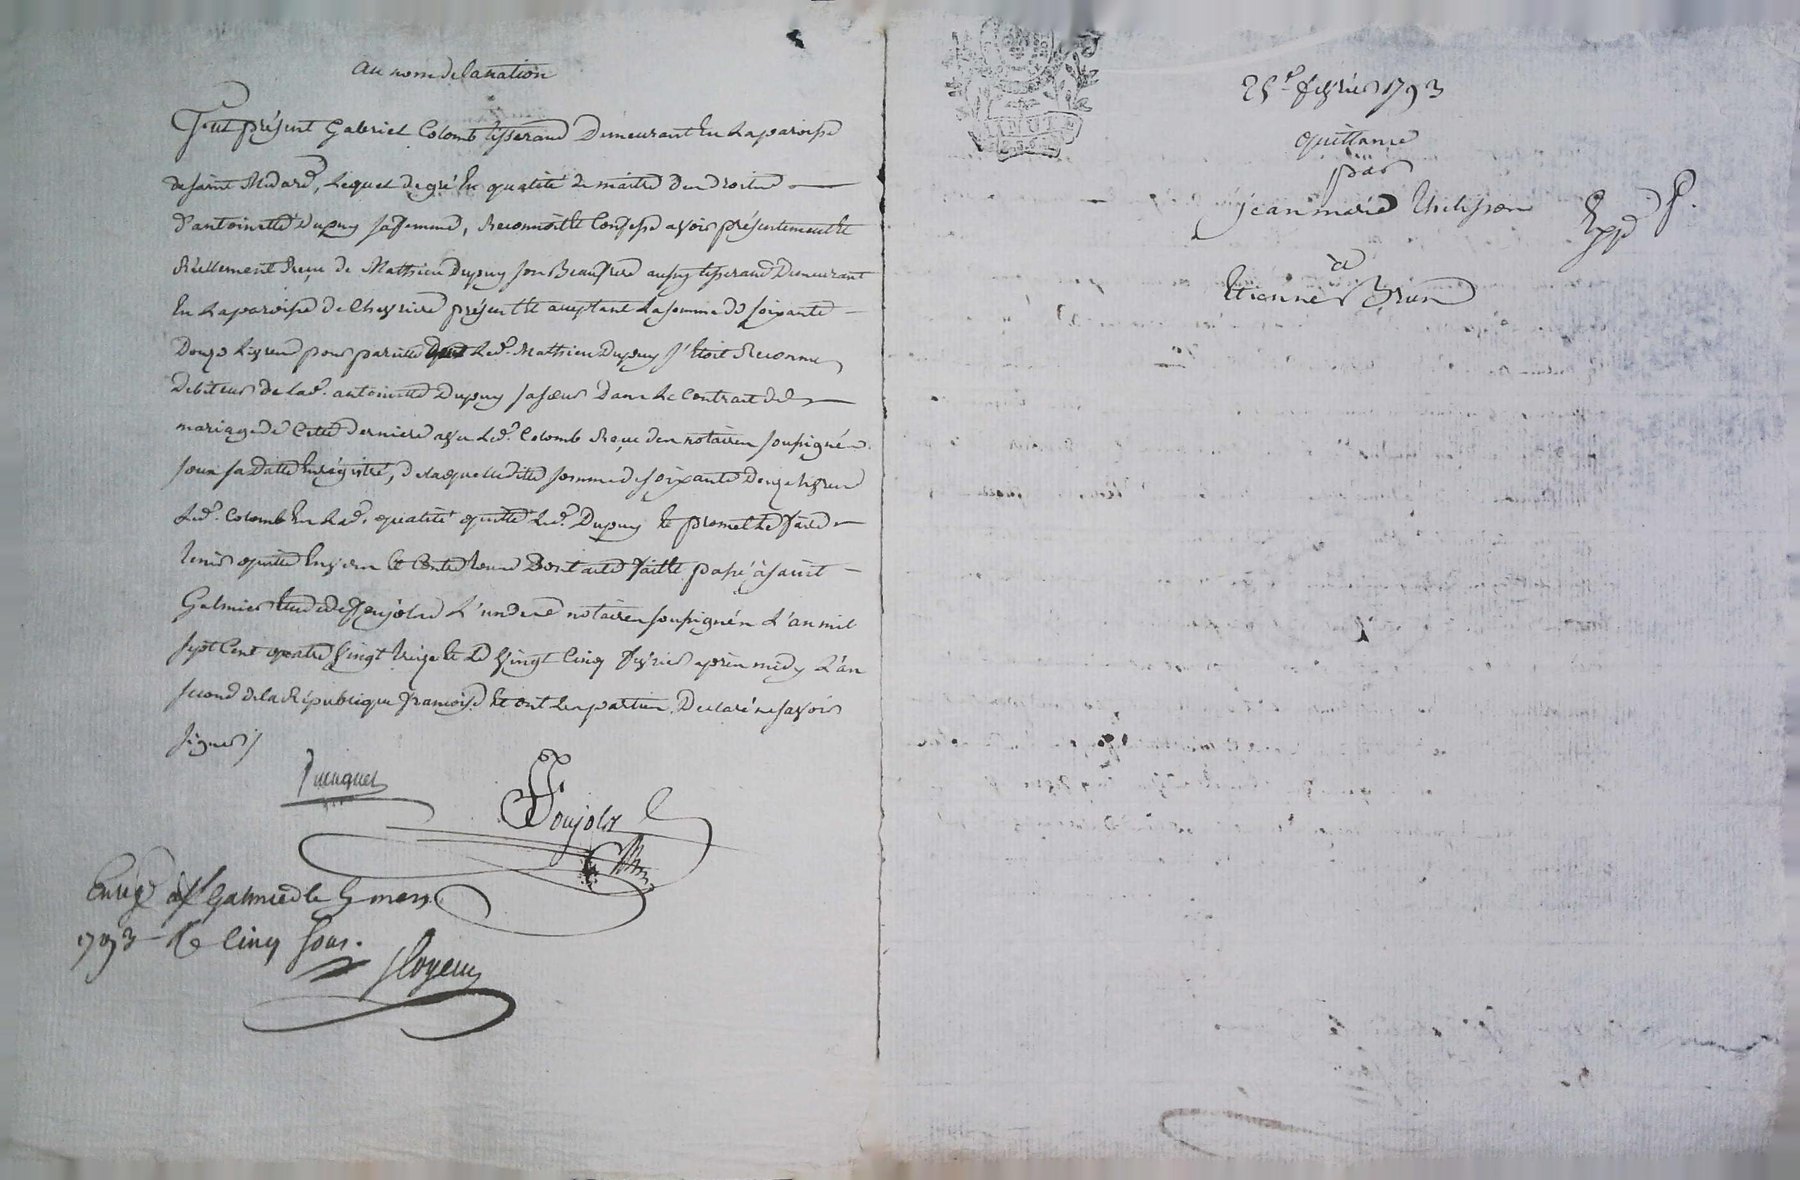 au nom de la nation
fut présent Gabriel Colomb tisserand Demeurant En La paroisse
de saint Medard, Lequel de gré En qualité de maitre des droits
d'antoinette Dupuy sa femme, Reconnoit et Confesse avoir présentement et
Réellement Reçu de Mathieu Dupuy son Beaufrere aussy tisserand Demeurant
En La paroisse de Chevriere présent et acceptant La somme de soixante
Douze Livres pour pareille que Led. Mathieu Dupuy s'étoit Reconnu
Debiteur de lad. antoinette Dupuy sa sœur Dans Le Contrait de
mariage de Cette derniere avec Led. Colomb Reçu des notaires soussignés
sous sa Datte Enrégistré, de laquelle ditte somme de soixante Douze livres
Led. Colomb En Lad. qualité quitte Led. Dupuy et promet Le faire
tenir quitte Envers Et Contre tous Dont acte fait et passé à saint
Galmier Etude de Ponjolas L'un des notaires soussignés L'an mil
sept Cent quatre vingt treize et Le vingt Cinq fevrier après midy L'an
second de la République francoise et ont Les parties Déclaré ne savoir
signer /
Enreg à St Galmier le 9 mars
1793 R Cinq sous.
MINUTE
25 fevrier 1793
quittance
par
jean marie Thelisson
à
Etienne Brun
Exp